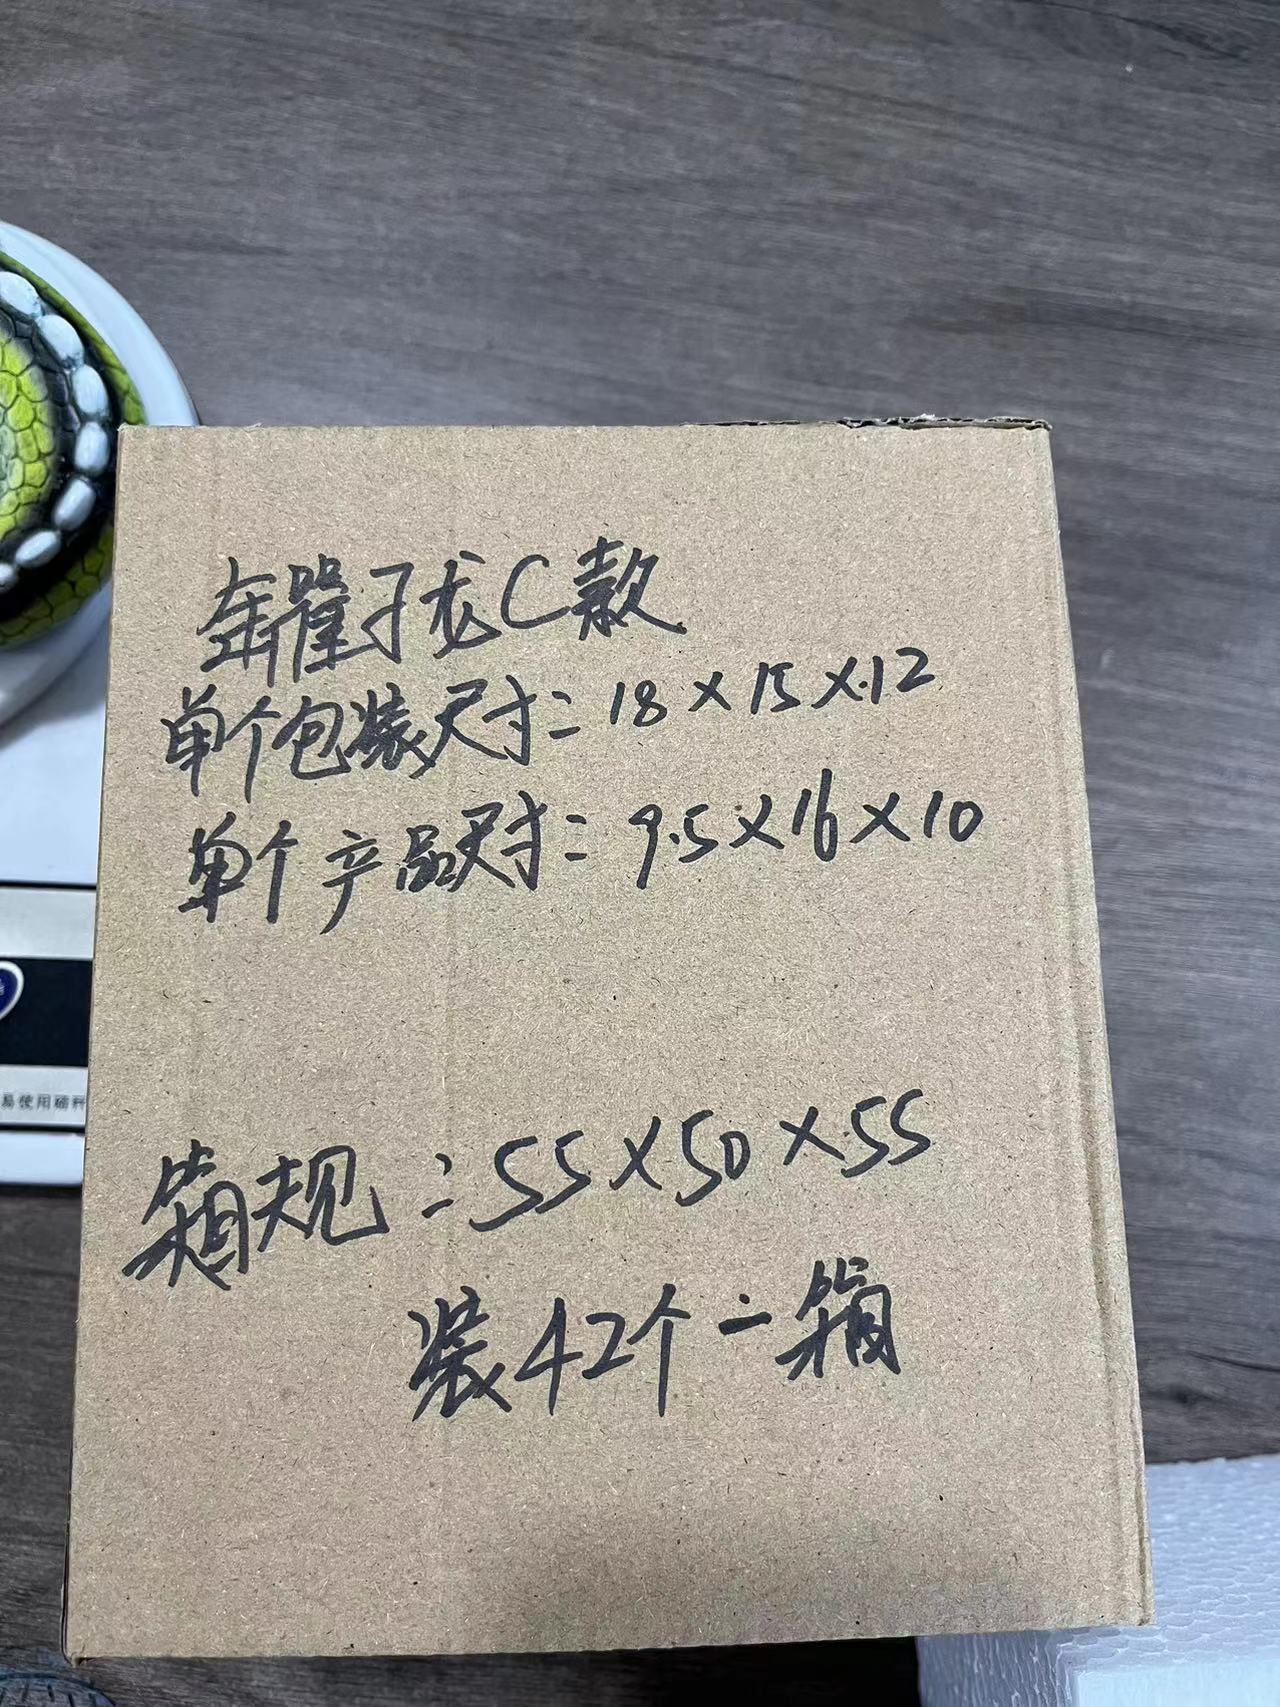 罐子龙C款
单个包装尺寸：18×15×12
单个产品尺寸：9.5×16×10
易使用磅秤
箱规：55×50×55
装42个一箱